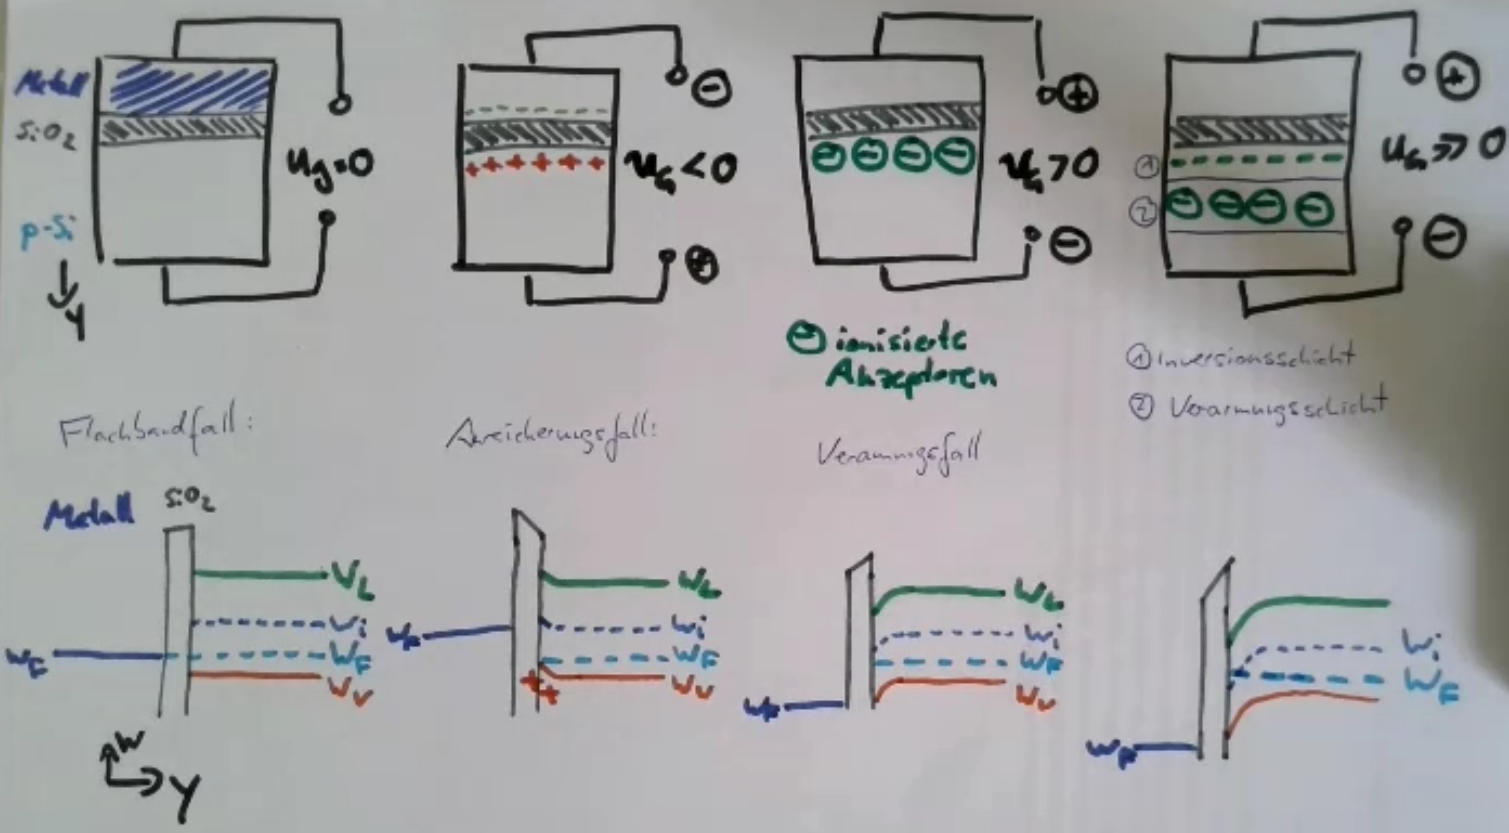 Metall
SiO₂
p-Si
y
Ug=0
⊖
UG<0
⊕
⊕
UG>0
⊖
⊕
UG≫0
①
②
⊖
⊖ ionisierte
Akzeptoren
① Inversionsschicht
② Verarmungsschicht
Flachbandfall:
Anreicherungsfall:
Verarmungsfall
Metall
SiO₂
WF
VL
Wi
WF
WV
WF
WL
Wi
WF
WV
WF
WL
Wi
WF
WV
WF
Wi
WF
W
Y